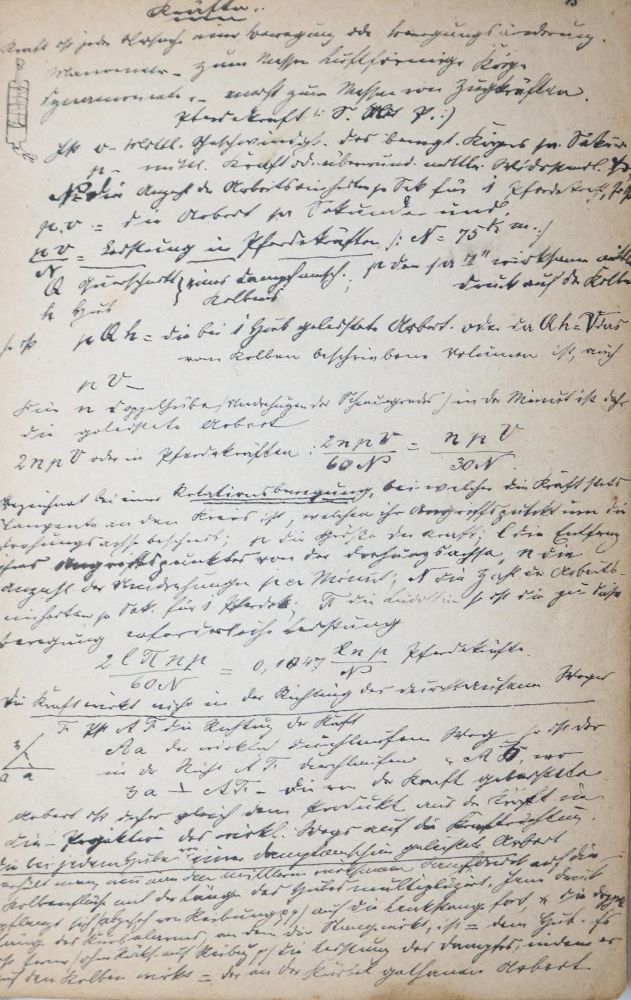 Kräfte.
Kraft ist jede Ursache einer Bewegung oder Bewegungsänderung.
Manometer - zum Messen luftförmiger Körper
Dynamometer - zum Messen von Zugkräften.
Pferdekraft (: S. P. :)
Ist v - mittl. Geschwindigk. des bewegt. Körpers pr. Sekunde
p - mittl. Kraft od. überwund. mittler Widerstand.
N - die Anzahl der Arbeitseinheiten pr Sek für 1 Pferdekr.
p.v = die Arbeit pr Sekunde und
pv / N = Leistung in Pferdekräften (: N = 75 k m. :)
Q Querschnitt } eines Dampfmasch. ; p den pr □" wirksamen mittl.
h Hub Kolbens Druck auf den Kolben
so ist p Q h = die bei 1 Hub geleistete Arbeit. oder da Q h = V das
vom Kolben beschriebene Volumen ist, auch
p V -
Für n Doppelhübe (Umdrehungen des Schwungrades) in der Minute ist daher
die geleistete Arbeit
2 n p V oder in Pferdekräften : 2 n p V / 60 N = n p V / 30 N
Bezeichnet bei einer Rotationsbewegung, bei welcher die Kraft stets
Tangente an dem Kreis ist, welchen ihr Angriffspunkt um die
Drehungsachse beschreibt; p die Größe der Kraft; l die Entfernung
ihres Angriffspunktes von der Drehungsachse, n die
Anzahl der Umdrehungen per Minute; N die Zahl der Arbeits-
einheiten pr Sek. für 1 Pferdek; π die so ist die zu dieser
Bewegung erforderliche Leistung
2 l π n p / 60 N = 0,1047 l n p / N Pferdekräfte.
Die Kraft wirkt nicht in der Richtung des durchlaufenen Weges
F Ist A F die Richtung der Kraft
A a der wirklich durchlaufene Weg so ist der
in der Richt. A F. durchlaufene = A B, wo
B a ⊥ A F. - Die von der Kraft geleistete
Arbeit ist daher gleich dem Produkt aus der Kraft in
die Projektion des wirkl. Wegs auf die Kraftrichtung.
Die bei jedem Hube von einer Dampfmaschine geleistete Arbeit
erhält man wenn man den mittleren wirksamen Dampfdruck auf die
Kolbenfläche mit der Länge des Hubes multipliziert. Dieser Druck
pflanzt sich (abgesehen von Reibung pp) auf die Lenkstange fort, die doppelte
Länge des Kurbelarms, an dem die Stange wirkt, ist = dem Hub. Es
ist ferner (ohne Rücks. auf Reibg pp) die Leistung des Dampfes, indem er
auf den Kolben wirkt = der an der Kurbel gethanen Arbeit.